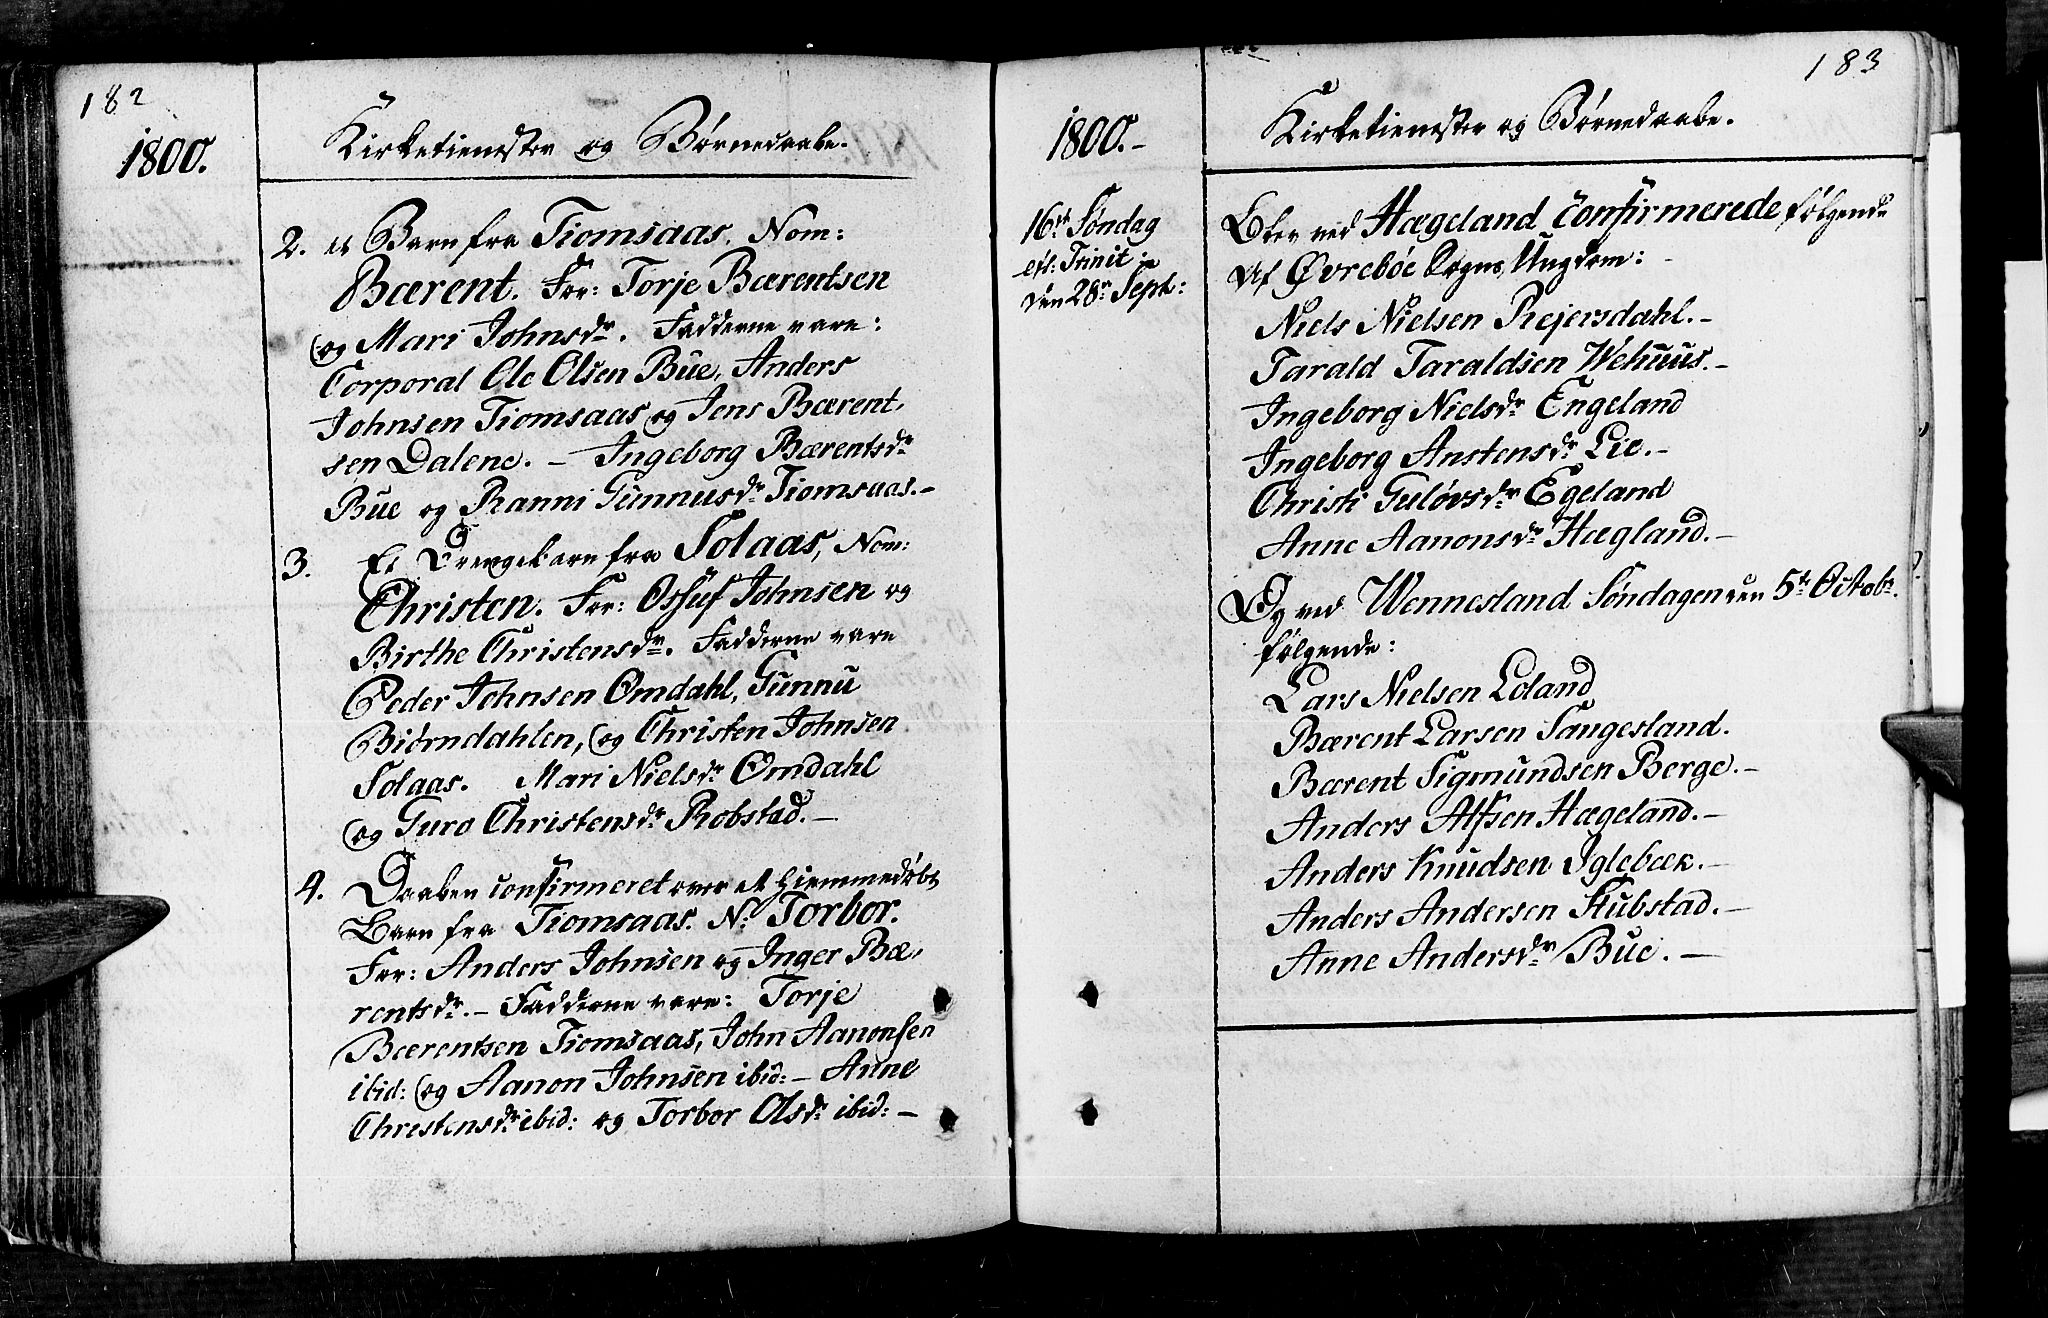 182
1800.
Kirketienester og Børnedaabe.
2. et Barn fra Tiomsaas, Nom:
Bærent. For: Torje Bærentsen
og Mari Johnsdr. Fadderne vare:
Corporal Ole Olsen Bue, Anders
Johnsen Tiomsaas og Jens Bærent-
sen Dalene. – Ingeborg Bærentsdr
Bue og Ranni Gunnusdr Tiomsaas. –
3. Et Drengebarn fra Solaas, Nom:
Christen. For: Ossuf Johnsen og
Birthe Christensdr. Fadderne vare
Peder Johnsen Omdahl, Gunnu
Biørndahlen, og Christen Johnsen
Solaas. Mari Nielsdr Omdahl
og Guro Christensdr Robstad. –
4. Daaben confirmeret over et Hiemmedøbt
Barn fra Tiomsaas. N: Torbor.
For: Anders Johnsen og Inger Bæ-
rentsdr. – Fadderne vare: Torje
Bærentsen Tiomsaas, John Aanonsen
ibid: og Aanon Johnsen ibid: – Anne
Christensdr ibid: og Torbor Olsdr ibid: –
183
1800. –
Kirketienester og Børnedaabe.
16de Søndag
eft: Trinit:
den 28de Sept:
Blev ved Hægeland Confirmerede følgende
Af Øvrebøe Sogns Ungdom:
Niels Nielsen Rejersdahl. –
Tarald Taraldsen Wehuus. –
Ingeborg Nielsdr Engeland
Ingeborg Anstensdr Lie. –
Christi Guløvsdr Egeland
Anne Aanonsdr Hægland. –
Og ved Wennesland Søndagen den 5te Octobr.
følgende:
Lars Nielsen Loland
Bærent Larsen Sangesland.
Bærent Sigmundsen Berge. –
Anders Alfsen Hægeland. –
Anders Knudsen Iglebæk. –
Anders Andersen Stubstad. –
Anne Andersdr Bue. –